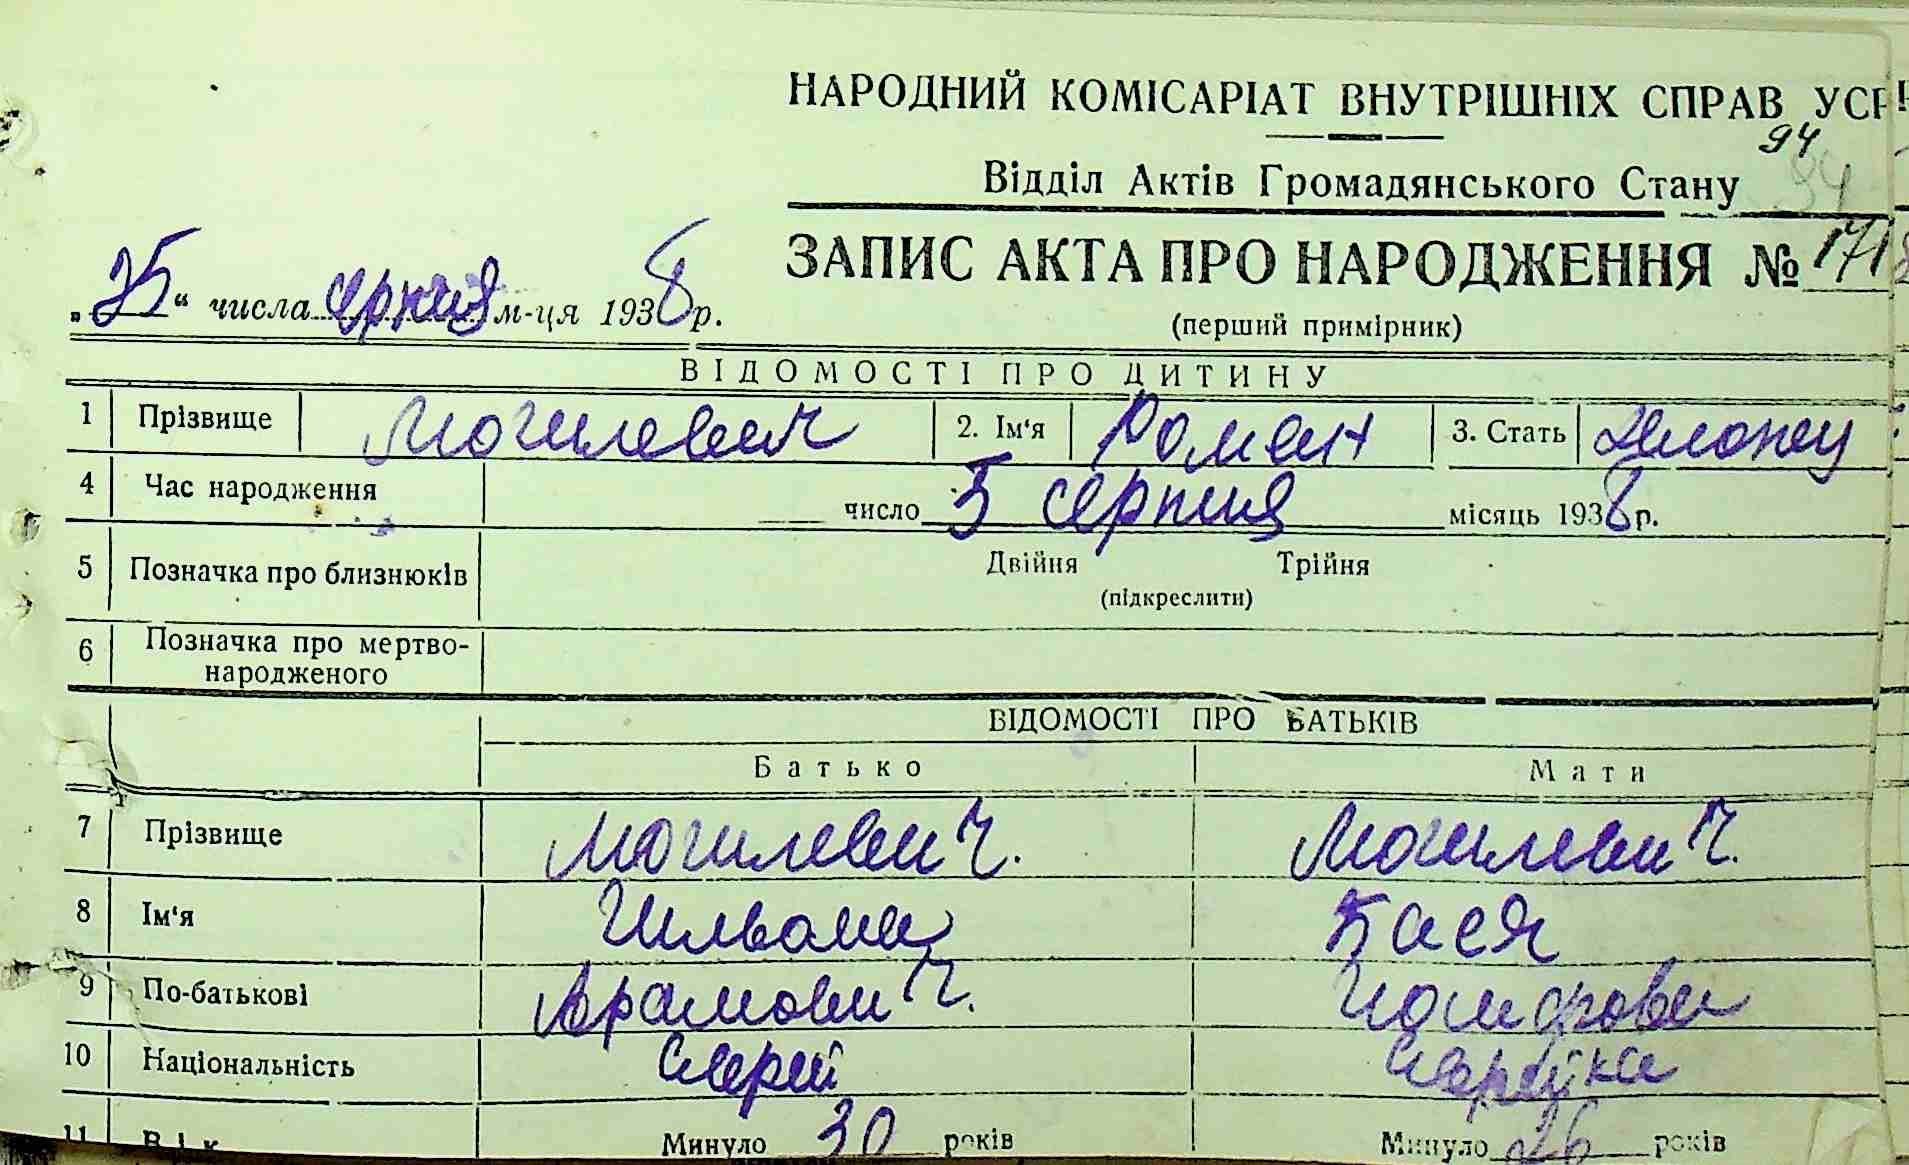 НАРОДНИЙ КОМІСАРІАТ ВНУТРІШНІХ СПРАВ УСР
94
94
Відділ Актів Громадянського Стану
ЗАПИС АКТА ПРО НАРОДЖЕННЯ № 171
„25“ числа серпня м-ця 1938 р.
(перший примірник)
ВІДОМОСТІ ПРО ДИТИНУ
1 Прізвище Могилевич 2. Ім'я Роман 3. Стать хлопец
4 Час народження число 5 серпня місяць 1938 р.
5 Позначка про близнюків Двійня Трійня
(підкреслити)
6 Позначка про мертво-
народженого
ВІДОМОСТІ ПРО БАТЬКІВ
Батько Мати
7 Прізвище Могилевич. Могилевич.
8 Ім'я Кася
9 По-батькові Абрамович.
10 Національність Єврей Єврейка
11 Вік Минуло 30 років Минуло 26 років